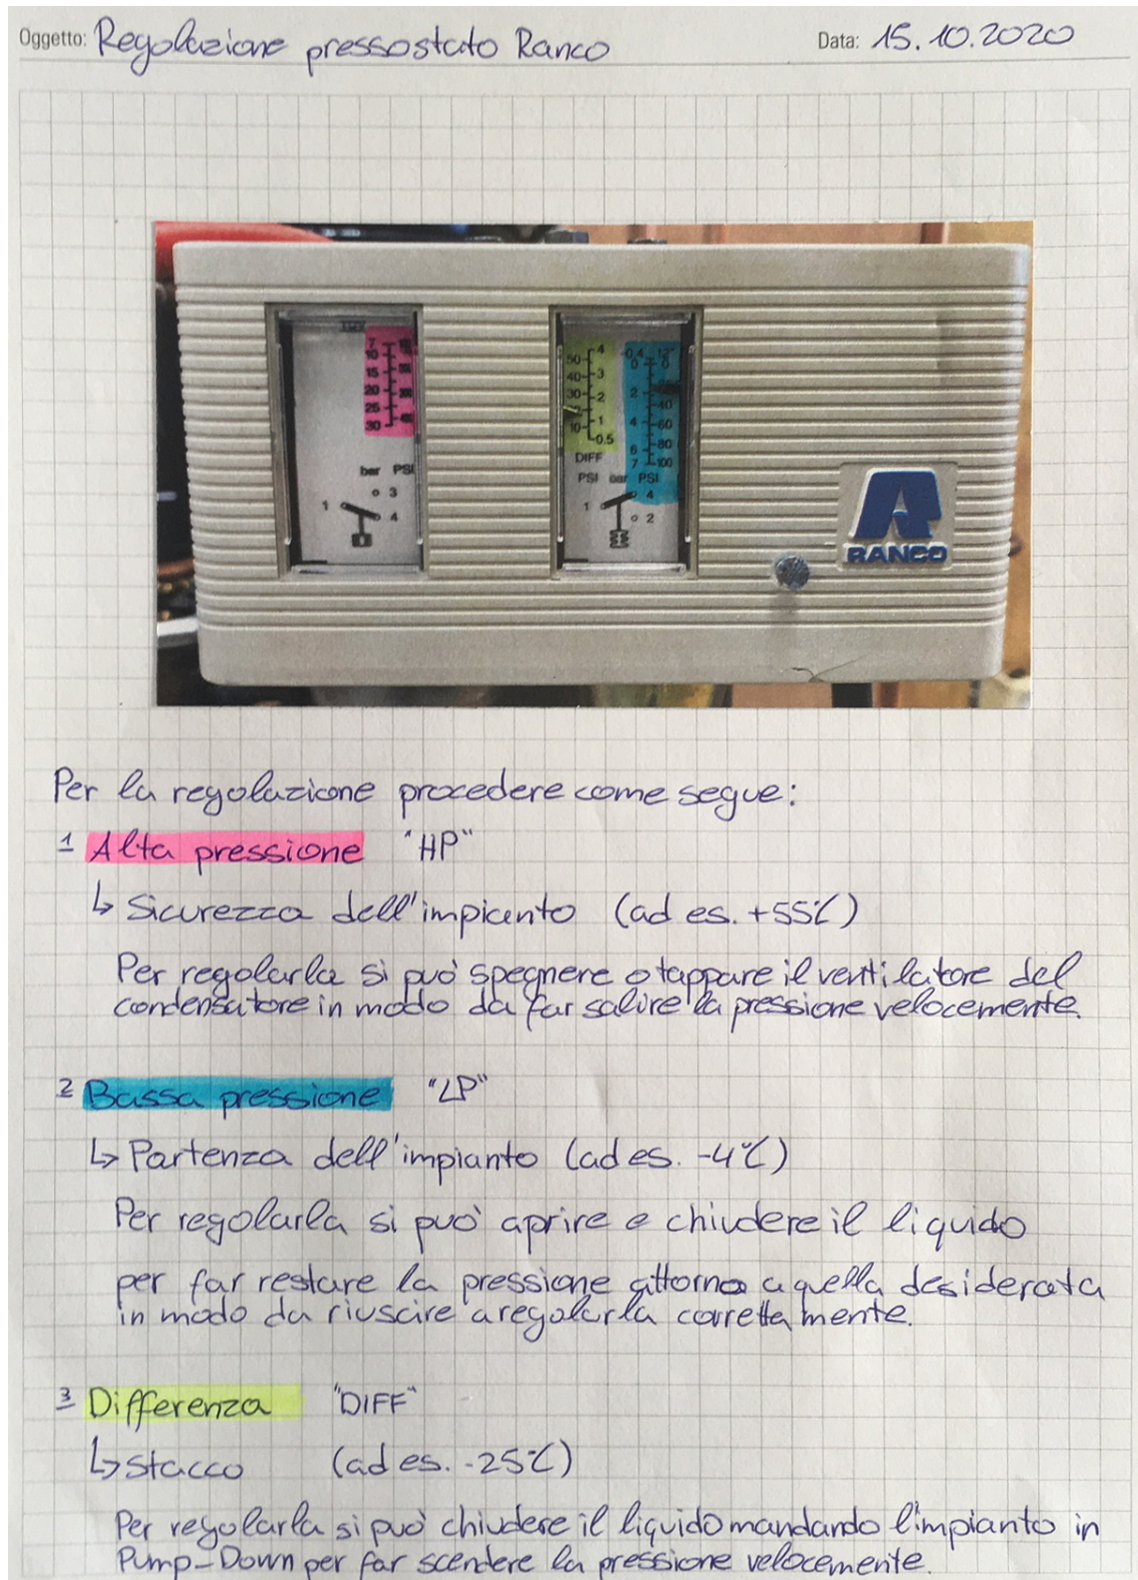 Oggetto: Regolazione pressostato Ranco
Data: 15.10.2020
7
10
15
20
25
30
bar PSI
3
1
4
50 4
40 3
30 2
10 1
0.5
DIFF
PSI bar PSI
-0,4 12"
0 0
2
40
4 60
6 80
7 100
4
1
2
RANCO
Per la regolazione procedere come segue:
1 Alta pressione "HP"
↳ Sicurezza dell'impianto (ad es. +55°C)
Per regolarla si può spegnere o tappare il ventilatore del
condensatore in modo da far salire la pressione velocemente.
2 Bassa pressione "LP"
↳ Partenza dell'impianto (ad es. -4°C)
Per regolarla si può aprire e chiudere il liquido
per far restare la pressione attorno a quella desiderata
in modo da riuscire a regolarla correttamente.
3 Differenza "DIFF"
↳ Stacco (ad es. -25°C)
Per regolarla si può chiudere il liquido mandando l'impianto in
Pump-Down per far scendere la pressione velocemente.